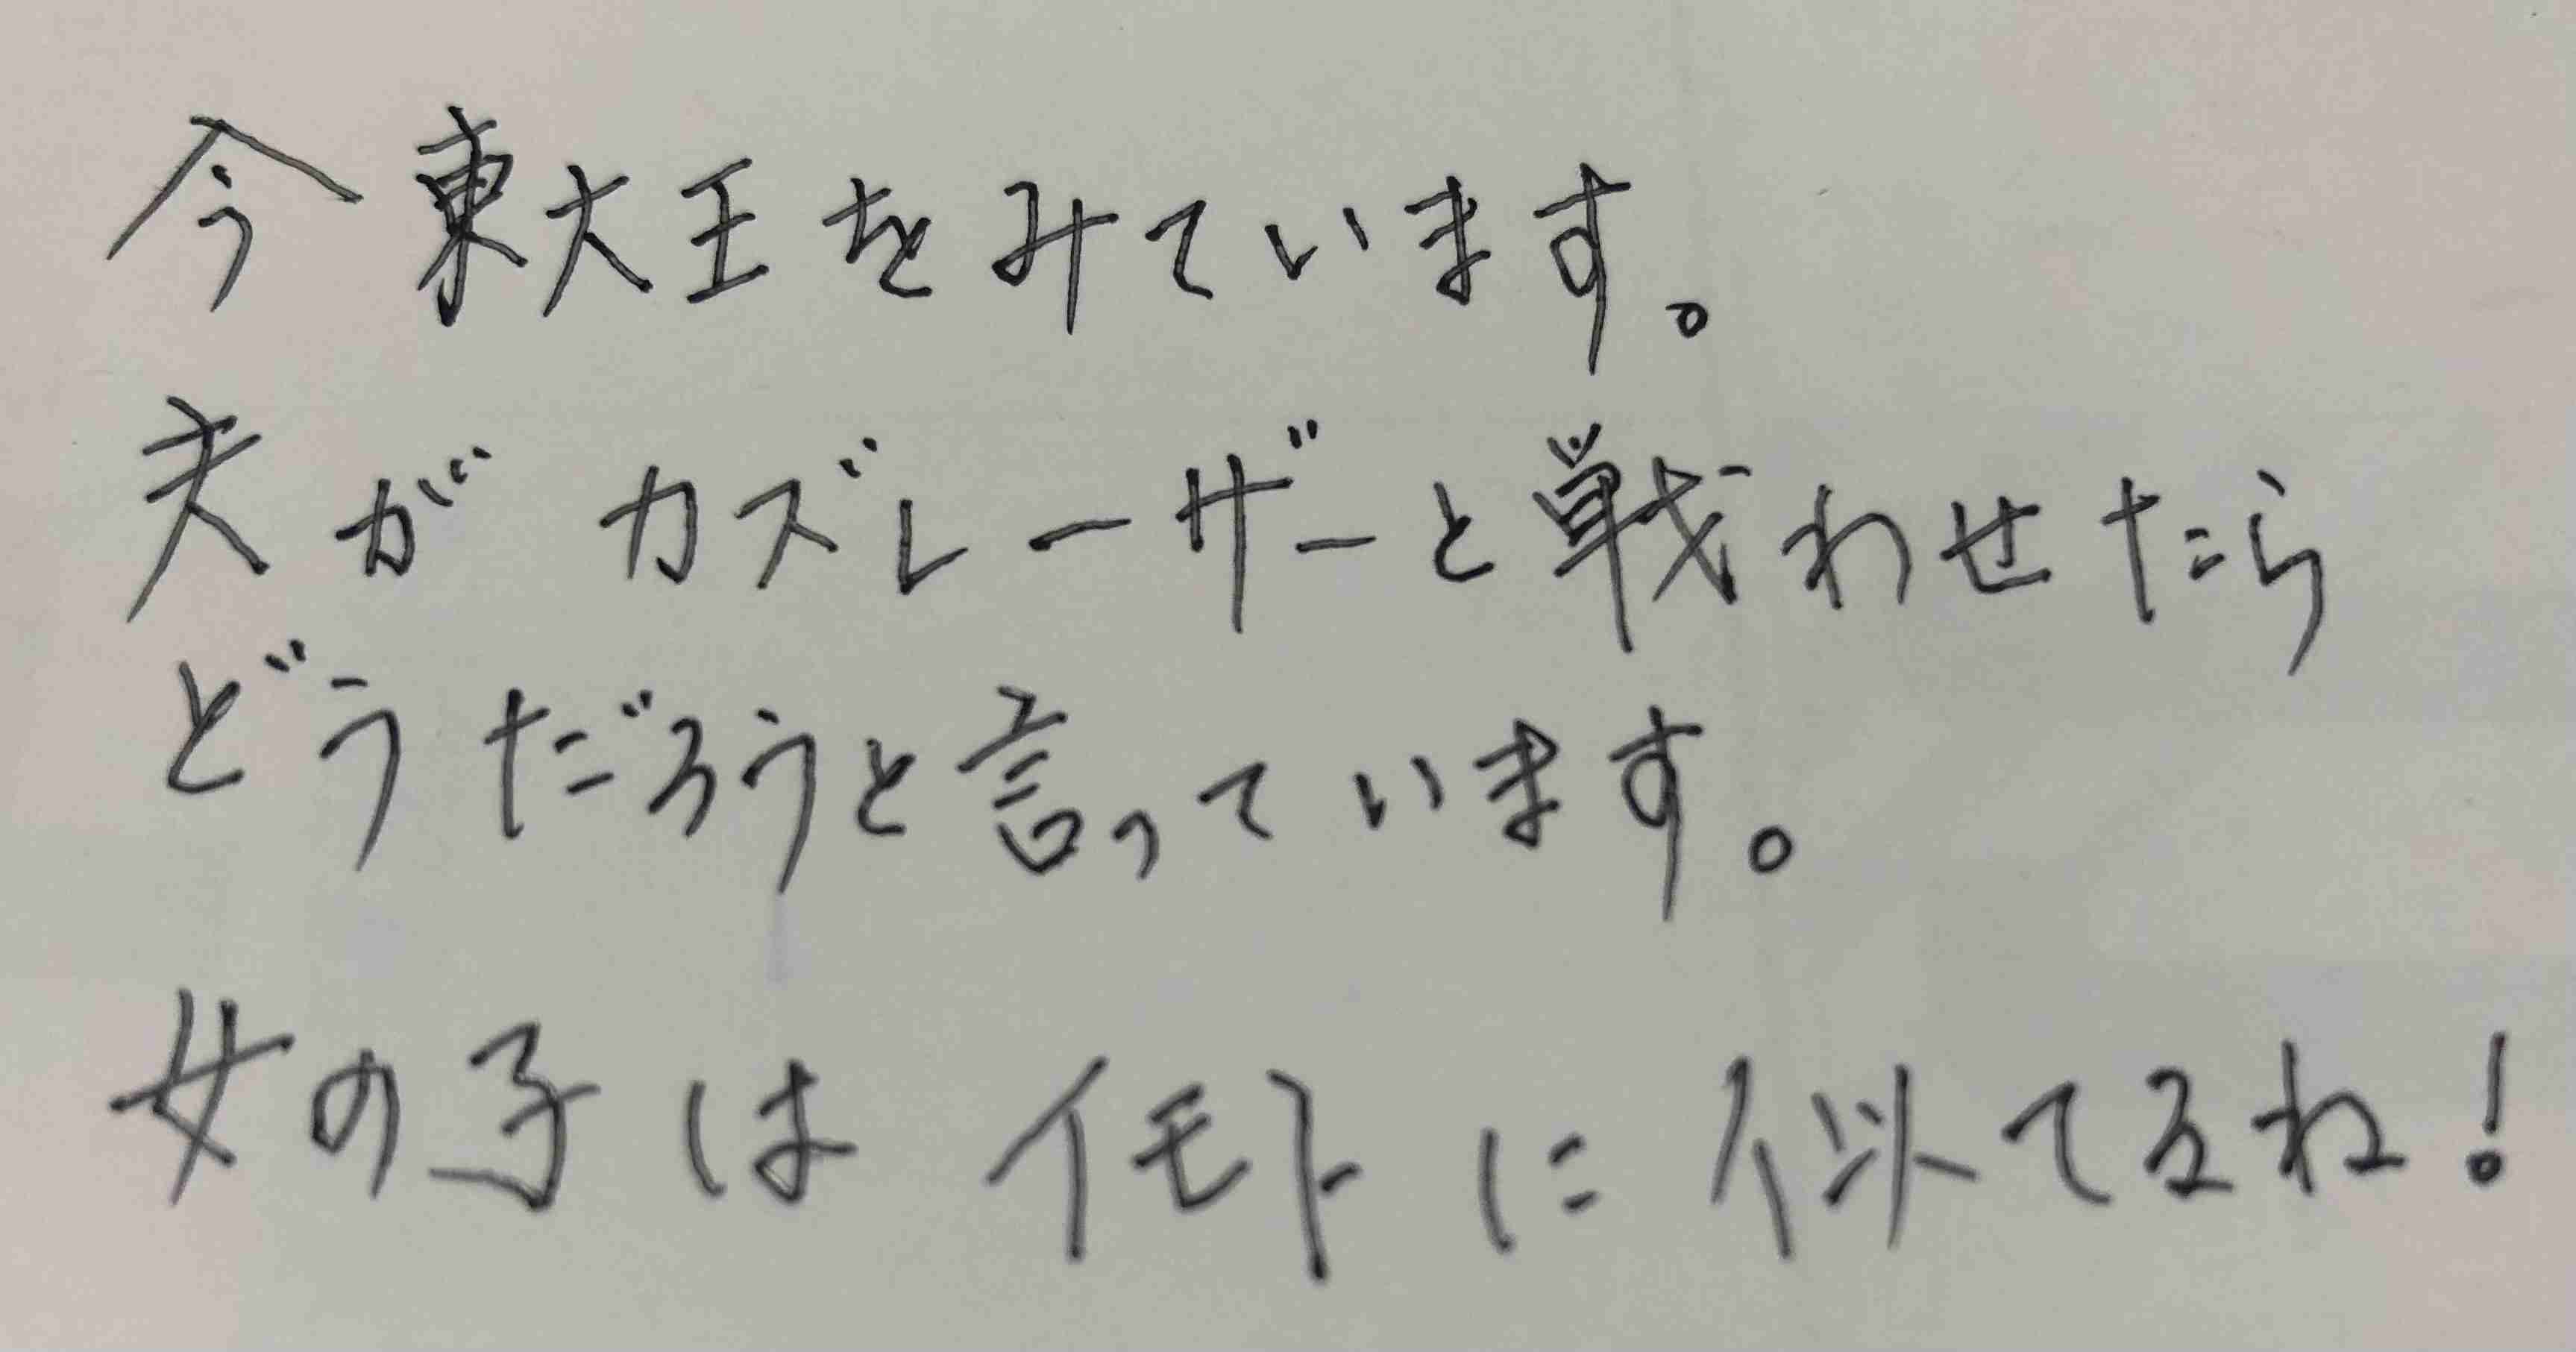 今東大王をみています。
夫がカズレーザーと戦わせたら
どうだろうと言っています。
女の子はイモトに似てるね!